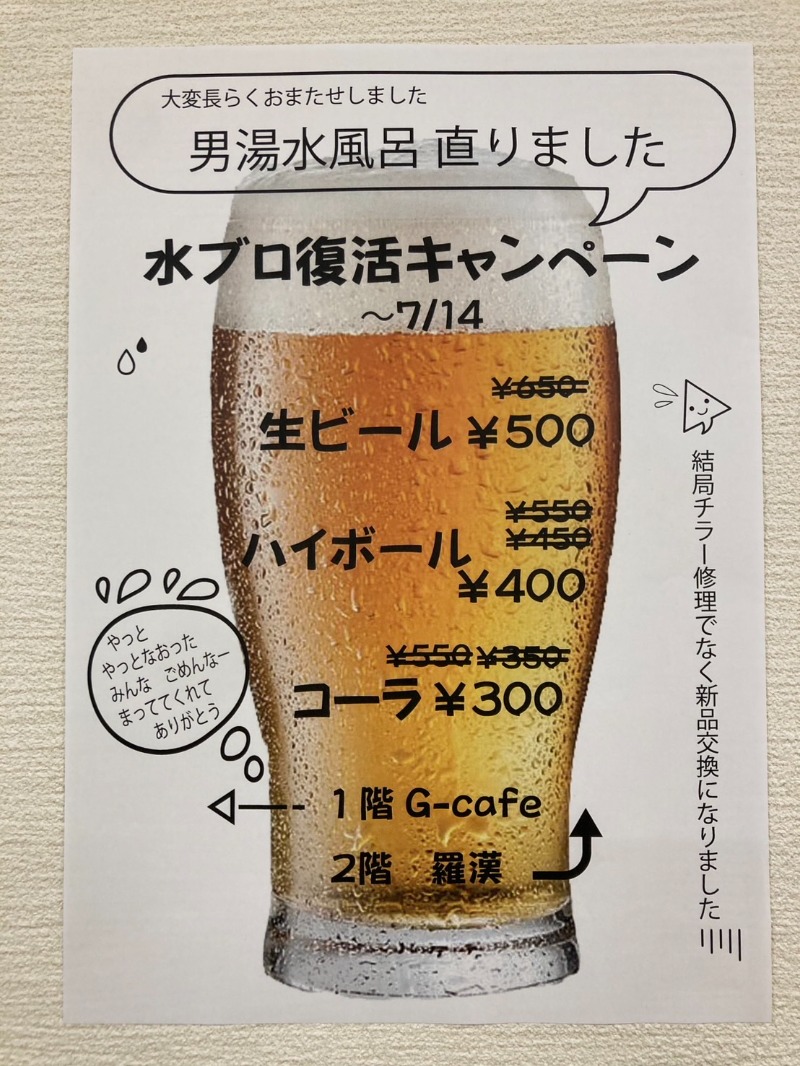 大変長らくおまたせしました
男湯水風呂 直りました
水ブロ復活キャンペーン
～7/14
¥650
生ビール ¥500
¥550
¥450
ハイボール
¥400
¥550 ¥350
コーラ ¥300
やっと
やっとなおった
みんな ごめんなー
まっててくれて
ありがとう
1階 G-cafe
2階 羅漢
結局チラー修理でなく新品交換になりました